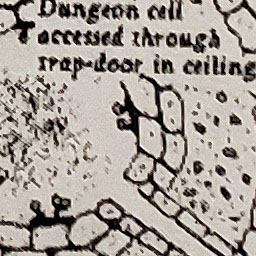 Dungeon cell
accessed through
trap-door in ceiling